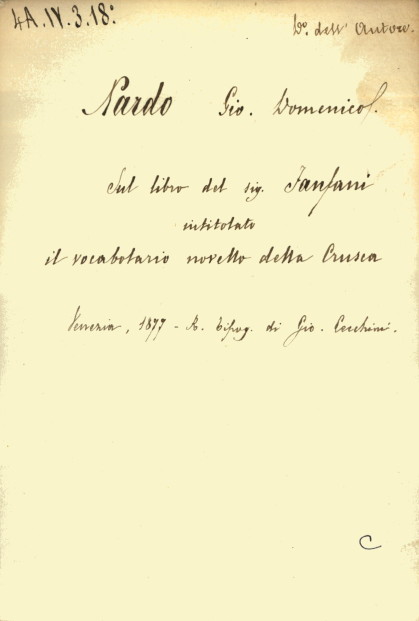 4A.IV.3.18:
Do. dell' Autore.
Nardo Gio. Domenico.
Sul libro del sig. Fanfani
intitolato
il vocabolario novello della Crusca
Venezia, 1877 - R. tipog. di Gio. Cecchini.
C